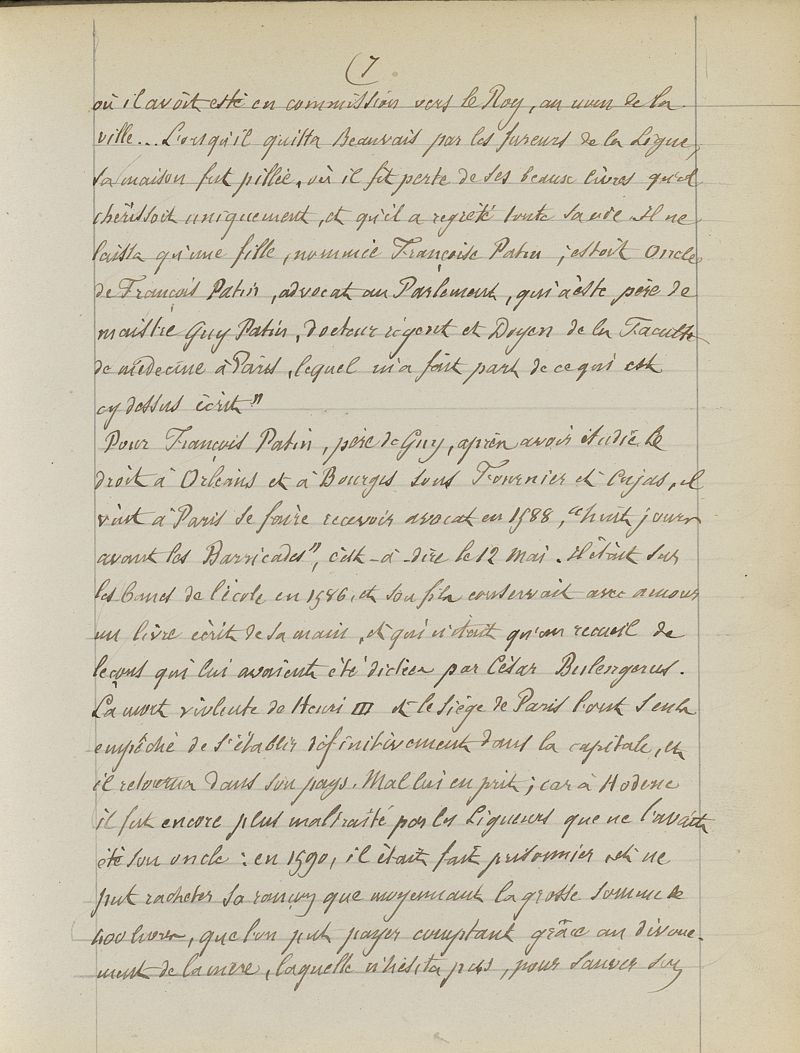 7
où il avoit esté en commission vers le Roy, au nom de la
ville... Lorsqu'il quitta Beauvais par les fureurs de la Ligue,
sa maison fut pillée, où il fit perte de ses beaux livres qu'il
chérissoit uniquement, et qu'il a regreté toute sa vie. Il ne
laissa qu'une fille, nommée Françoise Patin ; estoit Oncle
de François Patin, advocat au Parlement, qui a esté père de
maistre Guy Patin, docteur régent et Doyen de la Faculté
de médecine à Paris, lequel m'a fait part de ce qui est
cy dessus écrit"
Pour François Patin, père de Guy, après avoir étudié le
droit à Orléans et à Bourges sous Fournier et Cujas, il
vint à Paris se faire recevoir avocat en 1588, "huit jours
avant les Barricades", c'est-à-dire le 12 Mai. Il était sur
les bancs de l'école en 1586, et son fils conservait avec amour
un livre écrit de sa main, et qui n'était qu'un recueil de
leçons qui lui avaient été dictées par César Bulengerus.
La mort violente de Henri III et le siège de Paris l'ont seuls
empêché de s'établir définitivement dans la capitale, et
il retourna dans son pays. Mal lui en prit ; car à Hodenc
il fut encore plus maltraité par les Ligueurs que ne l'avait
été son oncle : en 1590, il était fait prisonnier et ne
put racheter sa rançon que moyennant la grosse somme de
400 livres, que l'on put payer comptant grâce au dévoue-
ment de la mère, laquelle n'hésita pas, pour sauver son